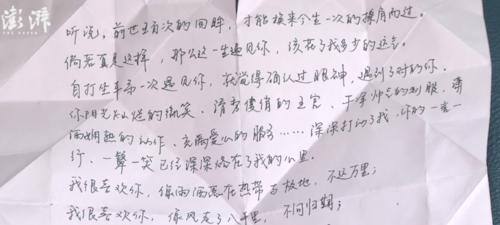 澎湃
THE PAPER
听说，前世五百次的回眸，才能换来今生一次的擦肩而过。
倘若真是这样，那么这一生遇见你，该花了我多少的运气。
自打生平第一次遇见你，就觉得确认过眼神，遇到了对的你。
你阳光灿烂的微笑、清秀俊俏的五官、干净帅气的制服、
娴熟的动作、充满爱心的服务……深深打动了我，你的一言一
行、一颦一笑已经深深烙在了我的心里。
我很喜欢你，像雨洒落在热带与极地，不远万里；
我很喜欢你，像风走了八千里，不问归期；